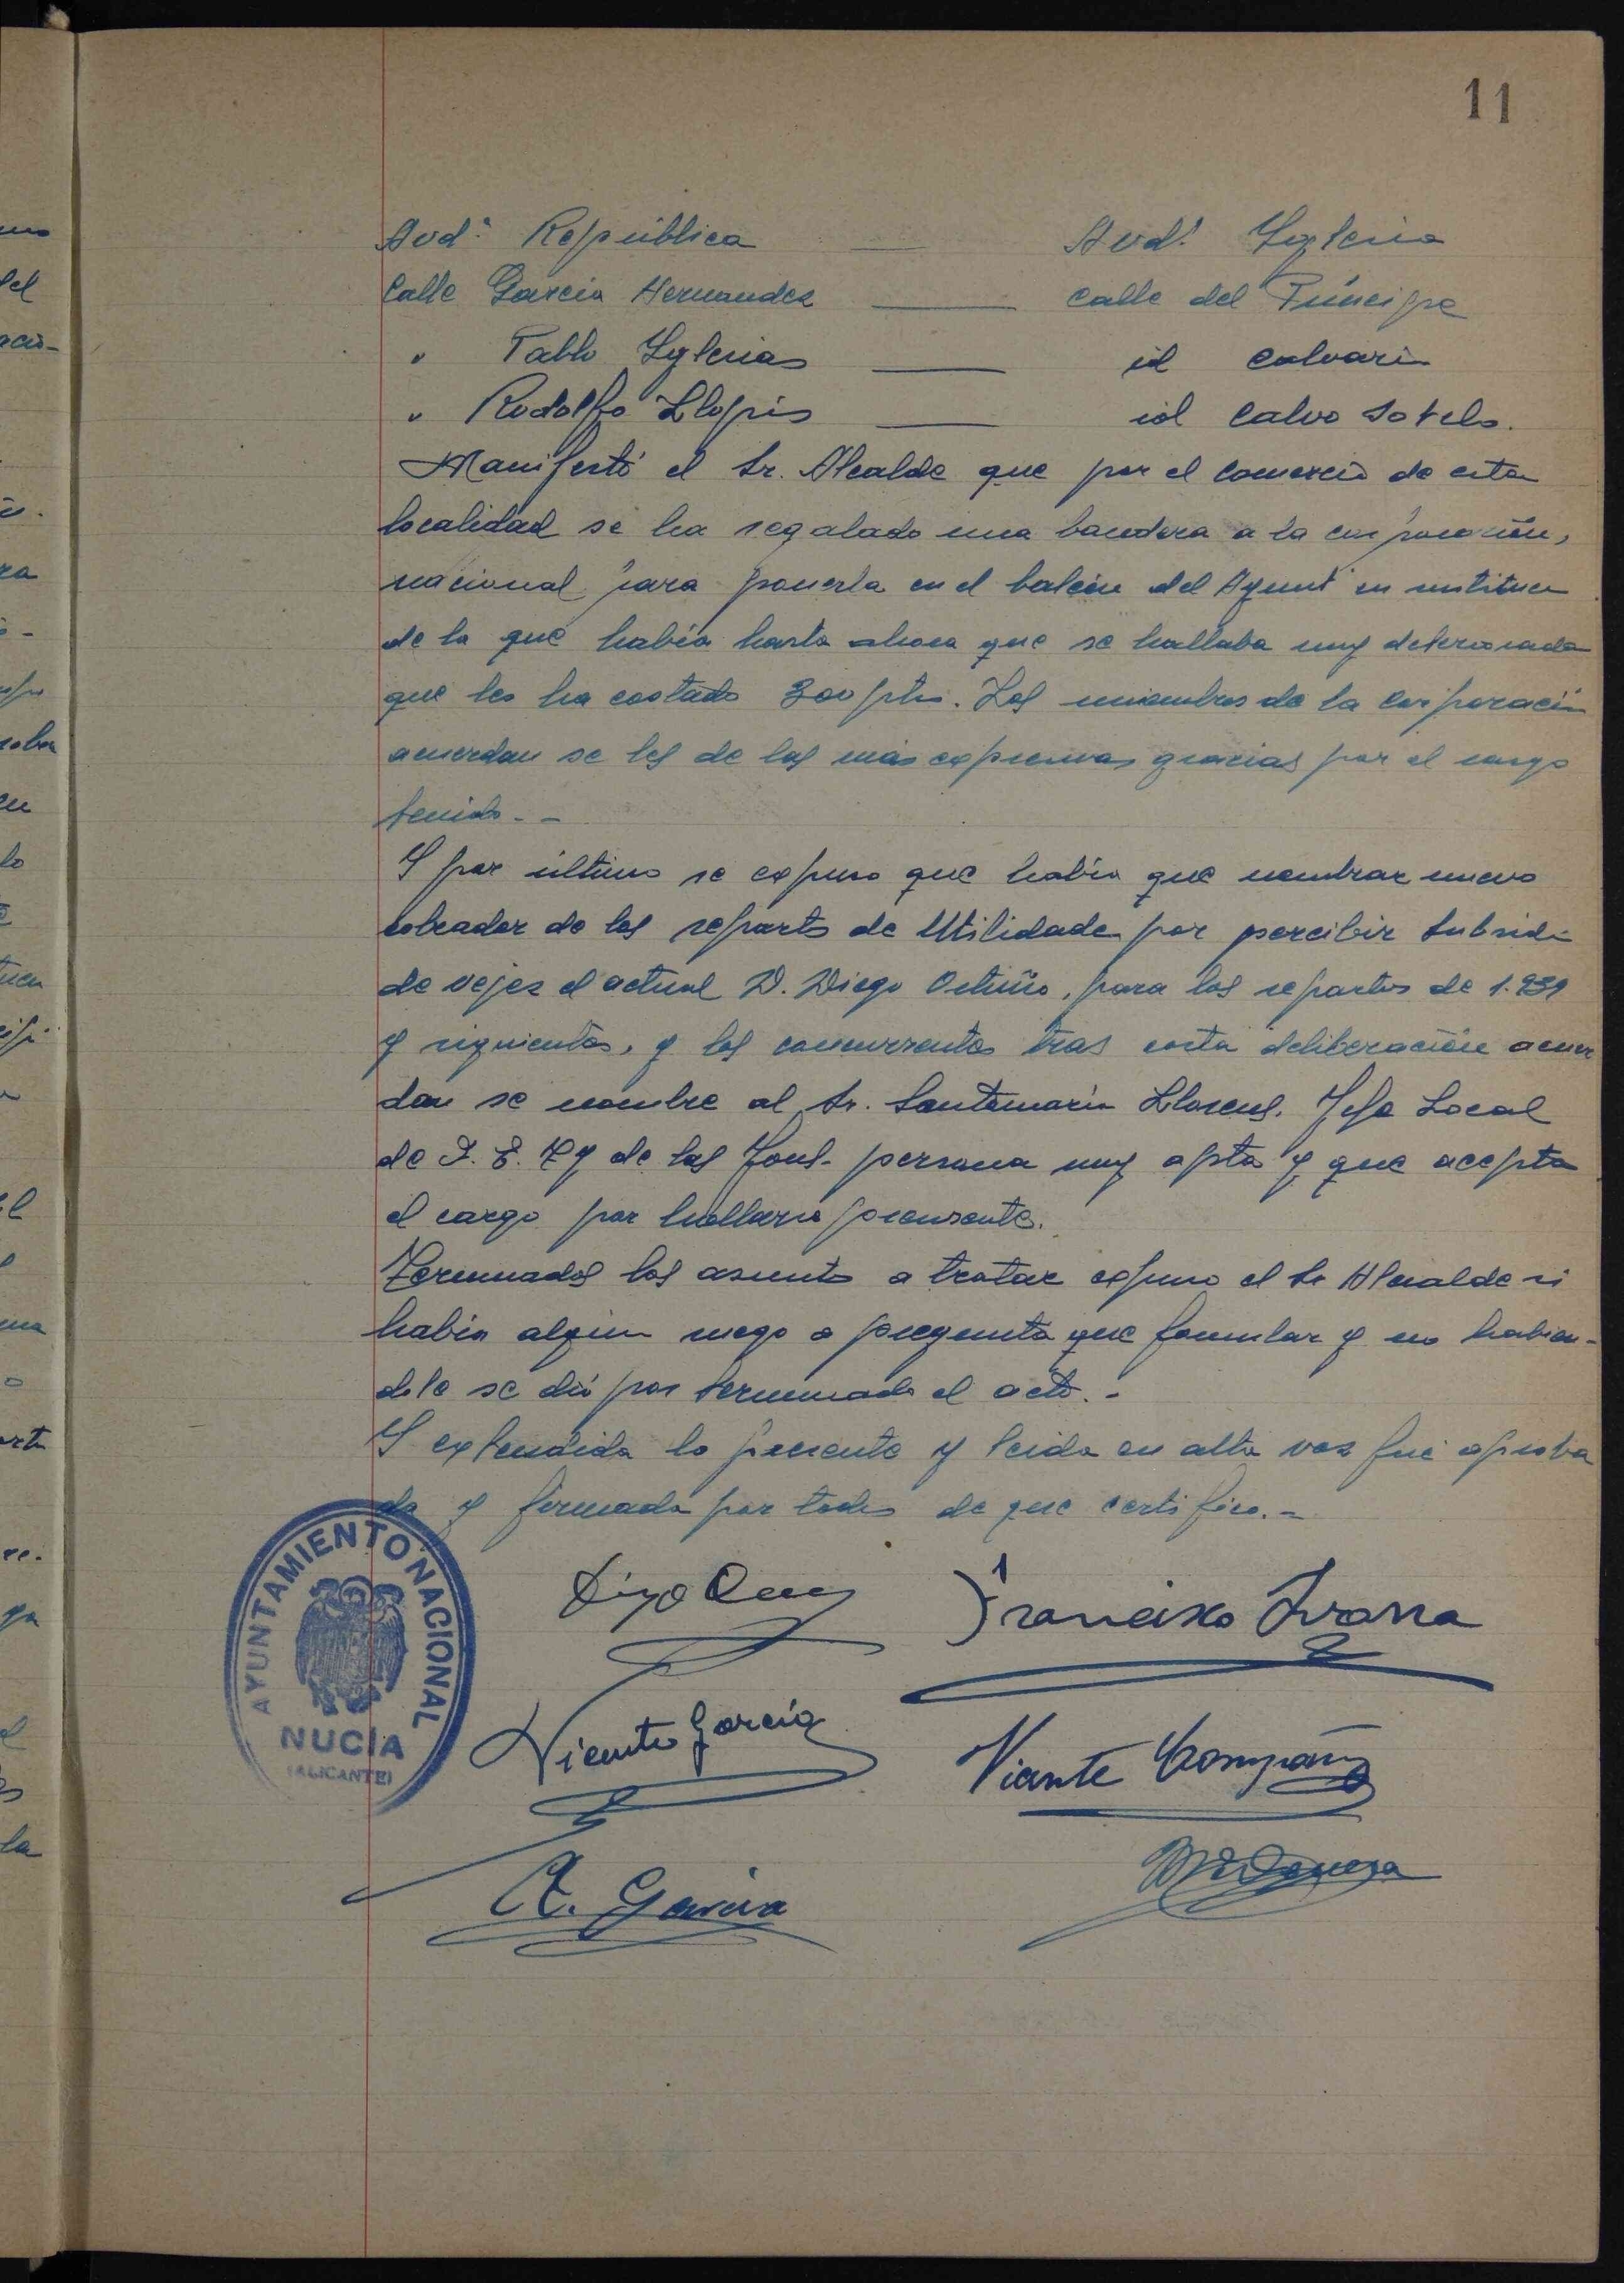 11
Avdª República — Avdª Yglesia
Calle García Hernandez — calle del Príncipe
" Pablo Yglesias — id Calvario
" Rodolfo Llopis — id Calvo Sotelo.
Manifestó el Sr. Alcalde que por el comercio de esta
localidad se ha regalado una bandera a la corporación,
nacional para ponerla en el balcón del Ayunt en sustitucn
de la que había hasta ahora que se hallaba muy deteriorada
que les ha costado 300 pts. Los miembros de la Corporación
acuerdan se les de las más expresivas gracias por el rasgo
tenido.-
Y por último se expuso que había que nombrar nuevo
cobrador de los reparts de Utilidades por percibir Subsidio
de vejez el actual D. Diego Ortuño, para los repartos de 1.939
y siguientes, y los concurrentes tras corta deliberación acuer
dan se nombre al Sr. Santamaría Llorens. Jefe Local
de F. E. T y de las Jons- persona muy apta y que acepta
el cargo por hallarse presente.
Terminados los asuntos a tratar expuso el Sr Alcalde si
había algun ruego o pregunta que formular y no habien-
dolo se dió por terminado el acto.-
Y extendida la presente y leida en alta voz fué aproba
da y firmada por todos de que certifico.-
AYUNTAMIENTO NACIONAL
NUCIA
(ALICANTE)
Francisco Ivorra
Vicente García
Vicente Company
A. García